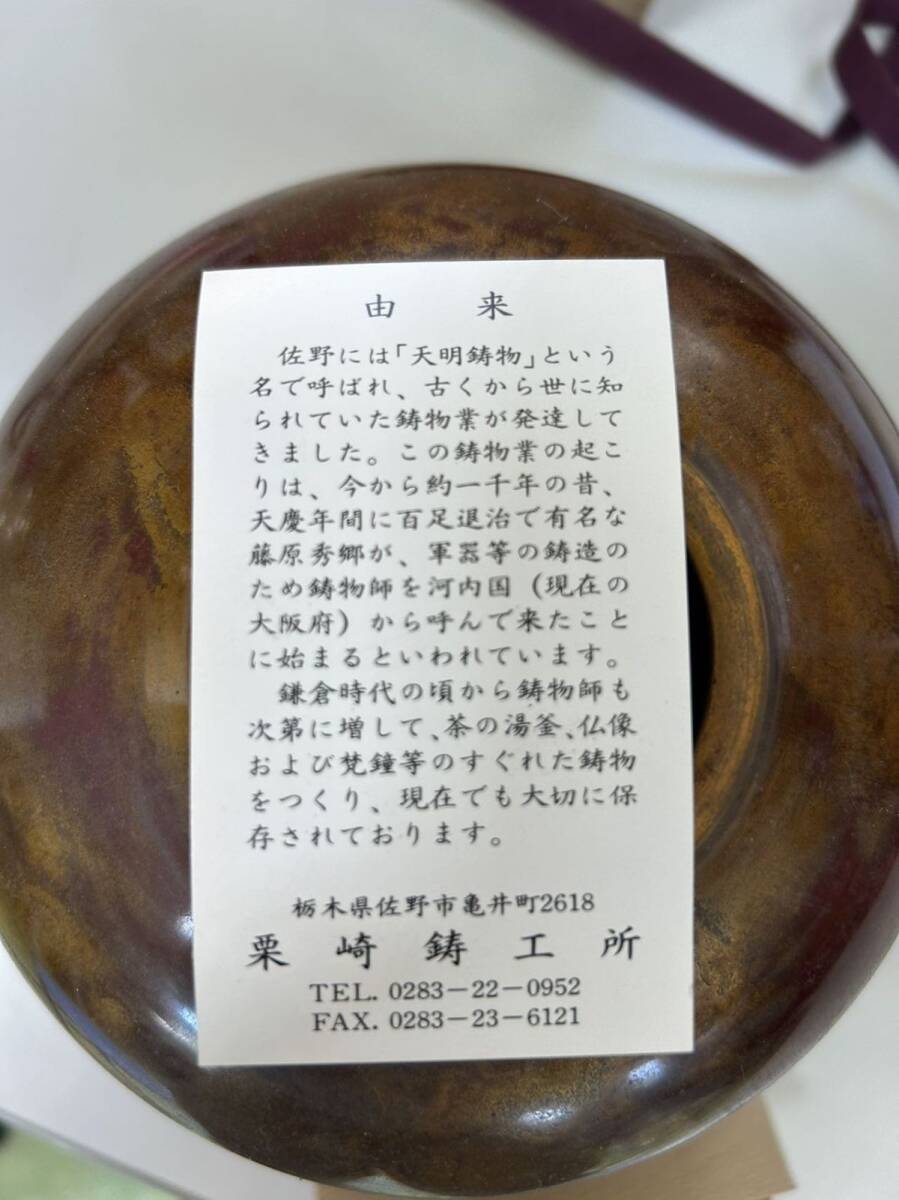 由来
佐野には「天明鋳物」という
名で呼ばれ、古くから世に知
られていた鋳物業が発達して
きました。この鋳物業の起こ
りは、今から約一千年の昔、
天慶年間に百足退治で有名な
藤原秀郷が、軍器等の鋳造の
ため鋳物師を河内国(現在の
大阪府)から呼んで来たこと
に始まるといわれています。
鎌倉時代の頃から鋳物師も
次第に増して、茶の湯釜、仏像
および梵鐘等のすぐれた鋳物
をつくり、現在でも大切に保
存されております。
栃木県佐野市亀井町2618
栗崎鋳工所
TEL. 0283-22-0952
FAX. 0283-23-6121